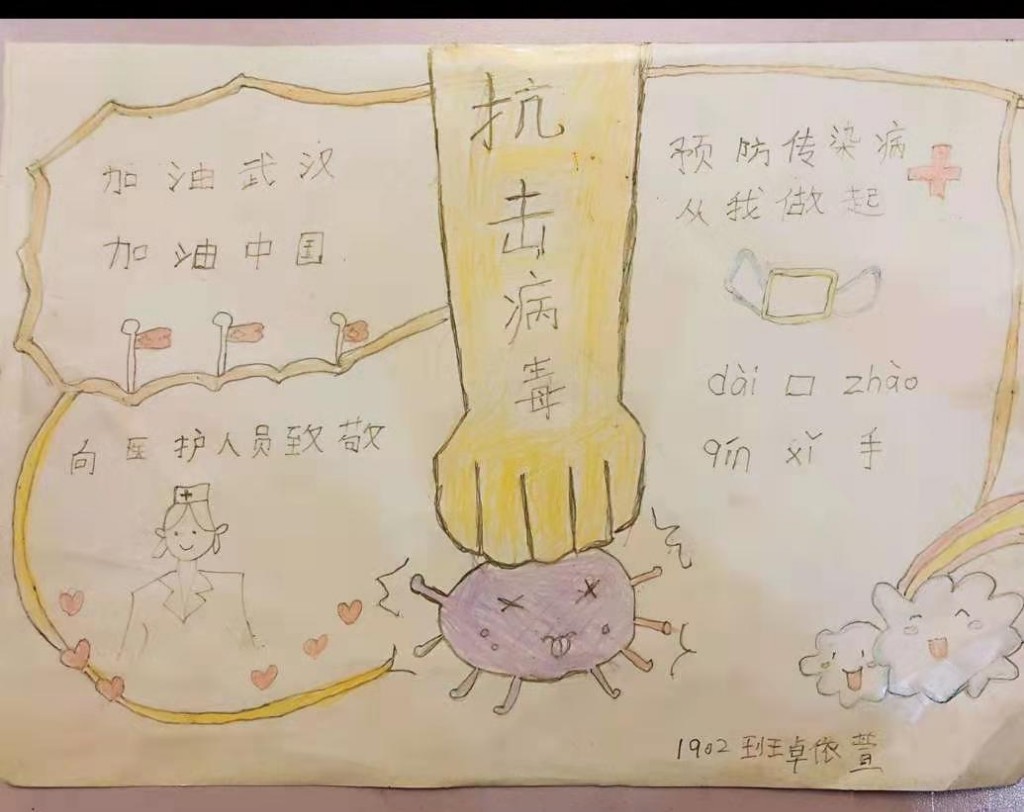 抗击病毒
加油武汉
加油中国
向医护人员致敬
预防传染病
从我做起
dài 口 zhào
qín xǐ 手
1902 班 卓依萱